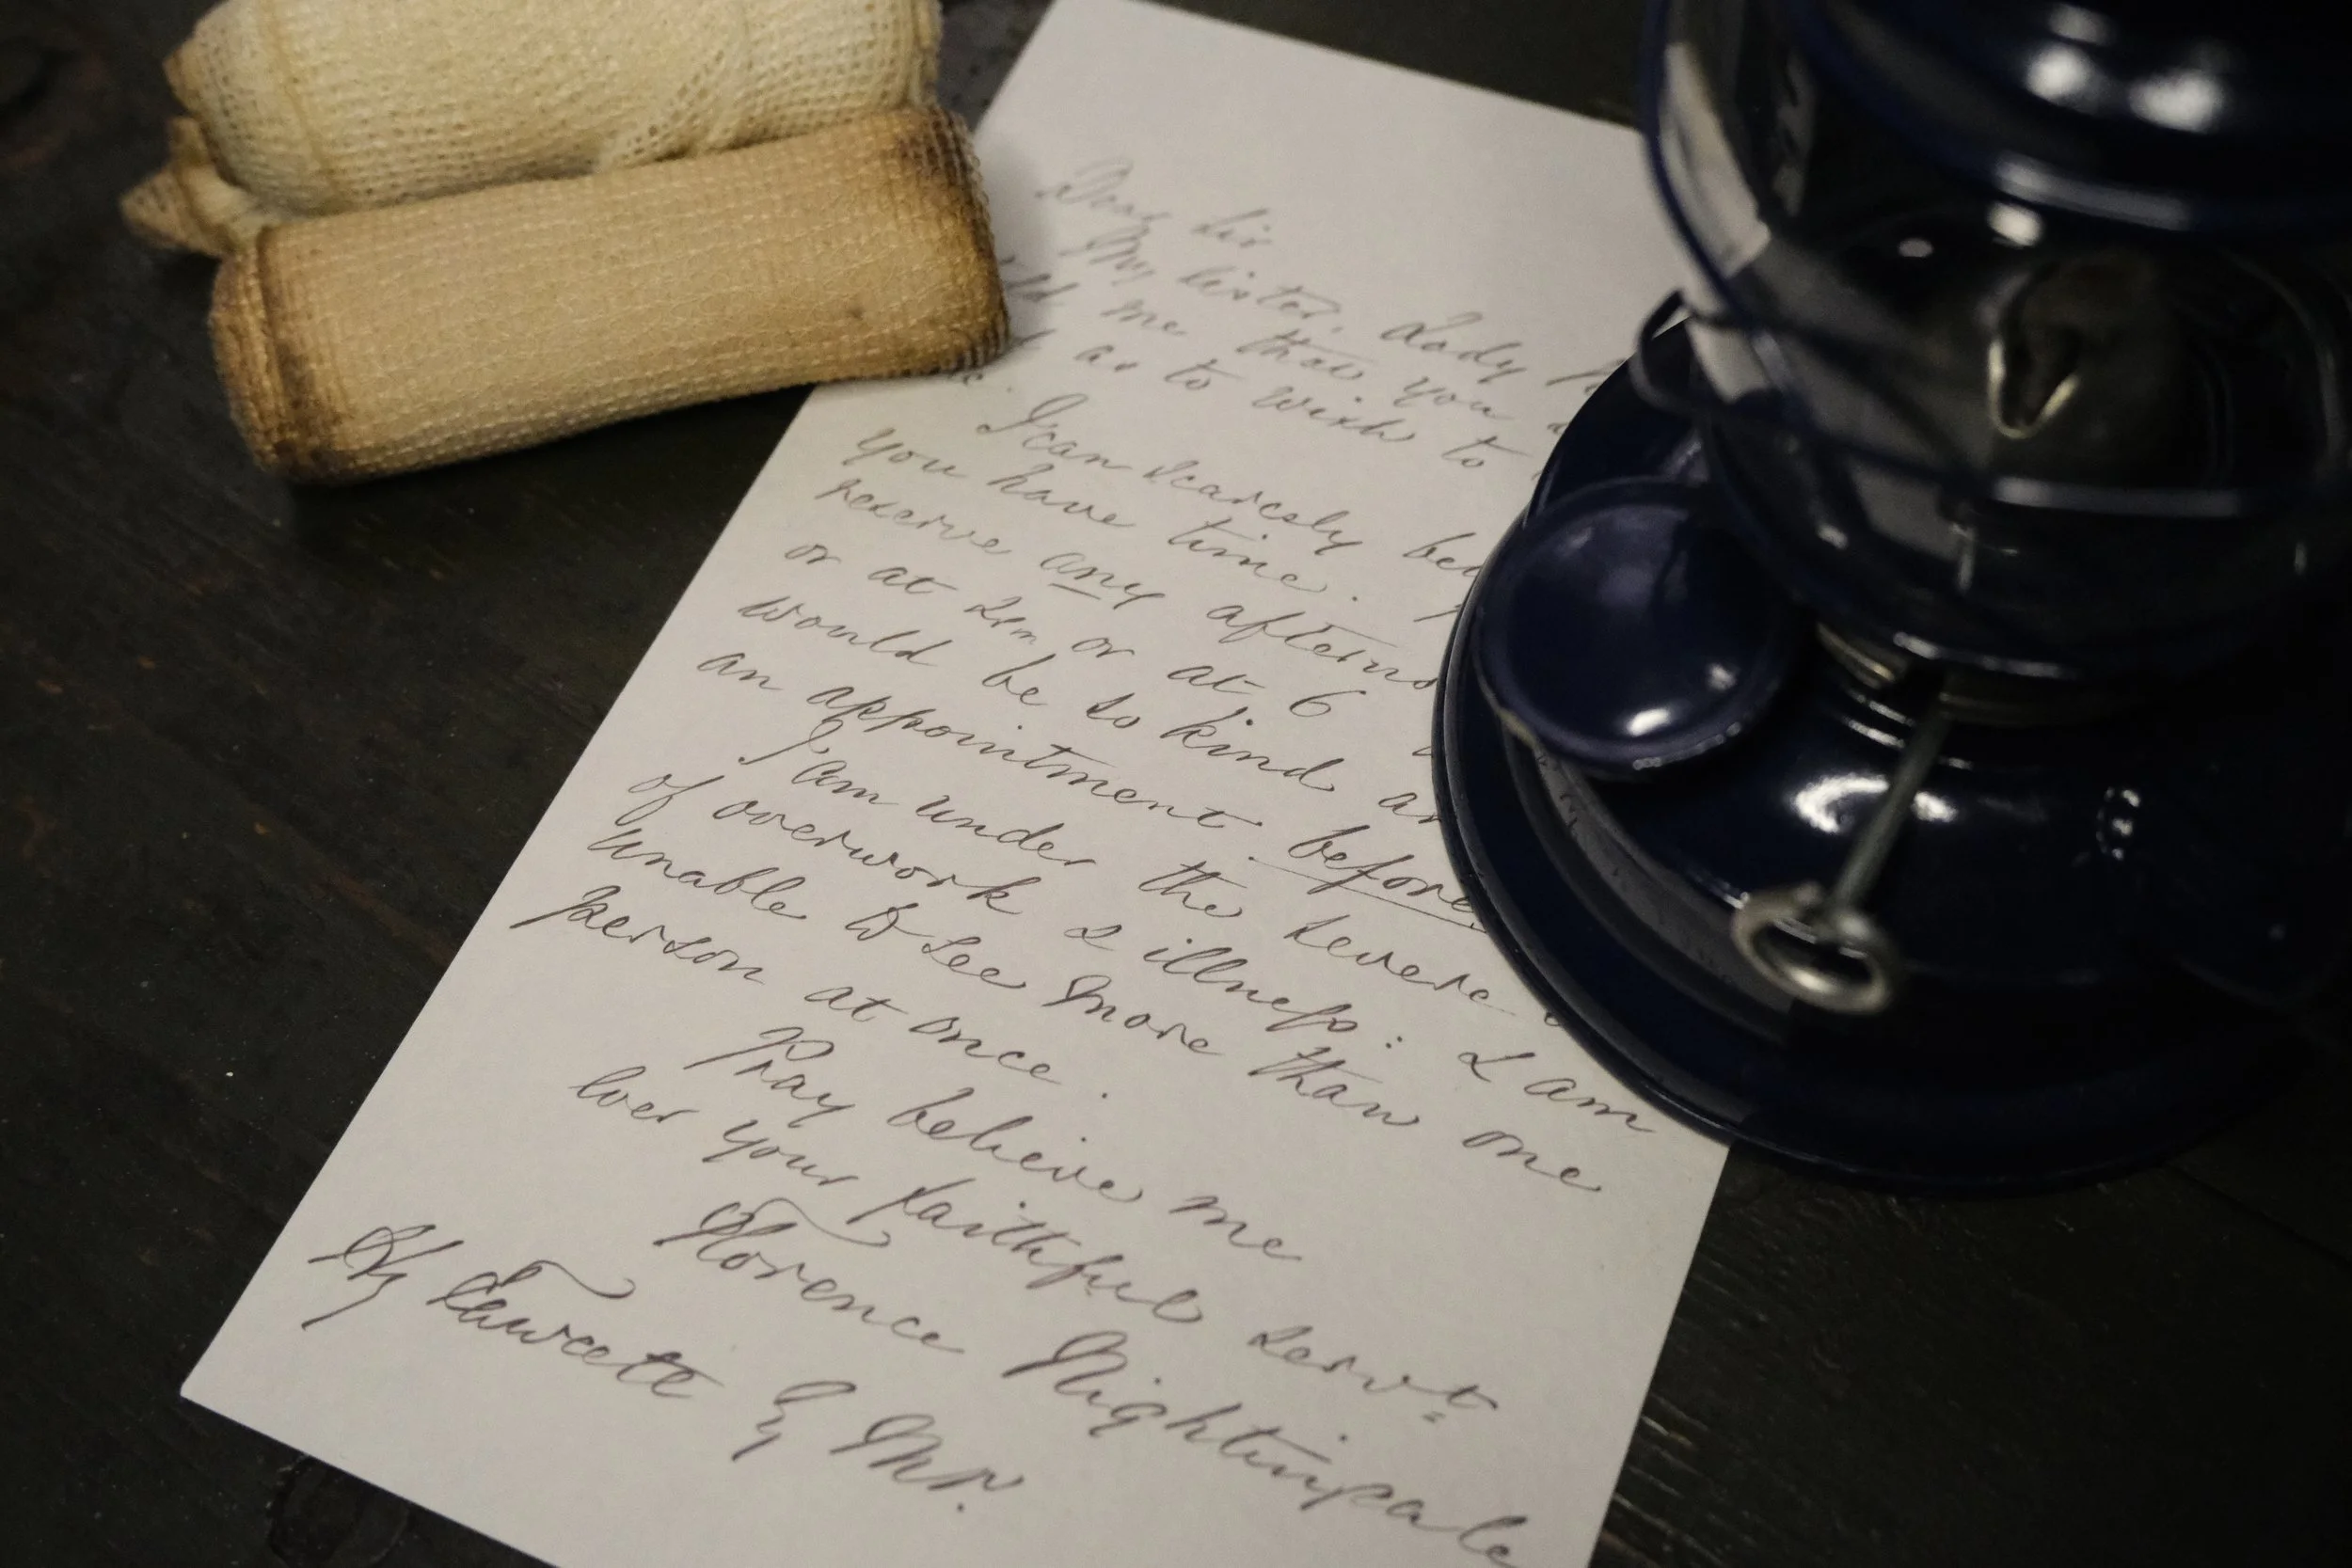 Dear Sir
My sister, Lady
me that you
as to wish to
I can scarcely
you have time.
reserve any
or at 2pm or at 6
would be so kind
an appointment before
I am under the severe
of overwork & illness: & am
unable to see more than one
person at once.
Pray believe me
ever your faithful servt
Florence Nightingale
Hy Fawcett Esq MP.